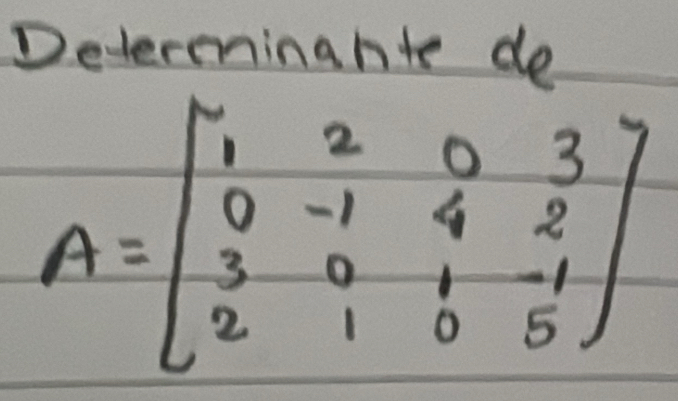 Determinante de
1 2 0 3
0 -1 4 2
A = 3 0 1 -1
2 1 0 5